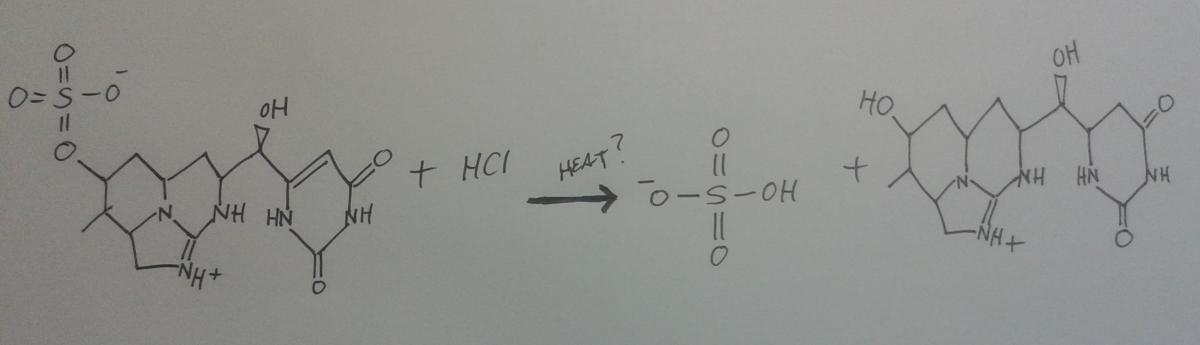 O
O=S-O⁻
O
OH
O
+ HCl
HEAT?
N
NH
HN
NH
NH+
O
O
⁻O-S-OH
O
+
HO
OH
O
N
NH
HN
NH
NH+
O